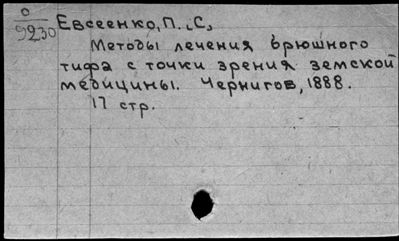 О
9230
Евсеенко, П. С.
Методы лечения брюшного
тифа с точки зрения земской
медицины. Чернигов, 1888.
17 стр.